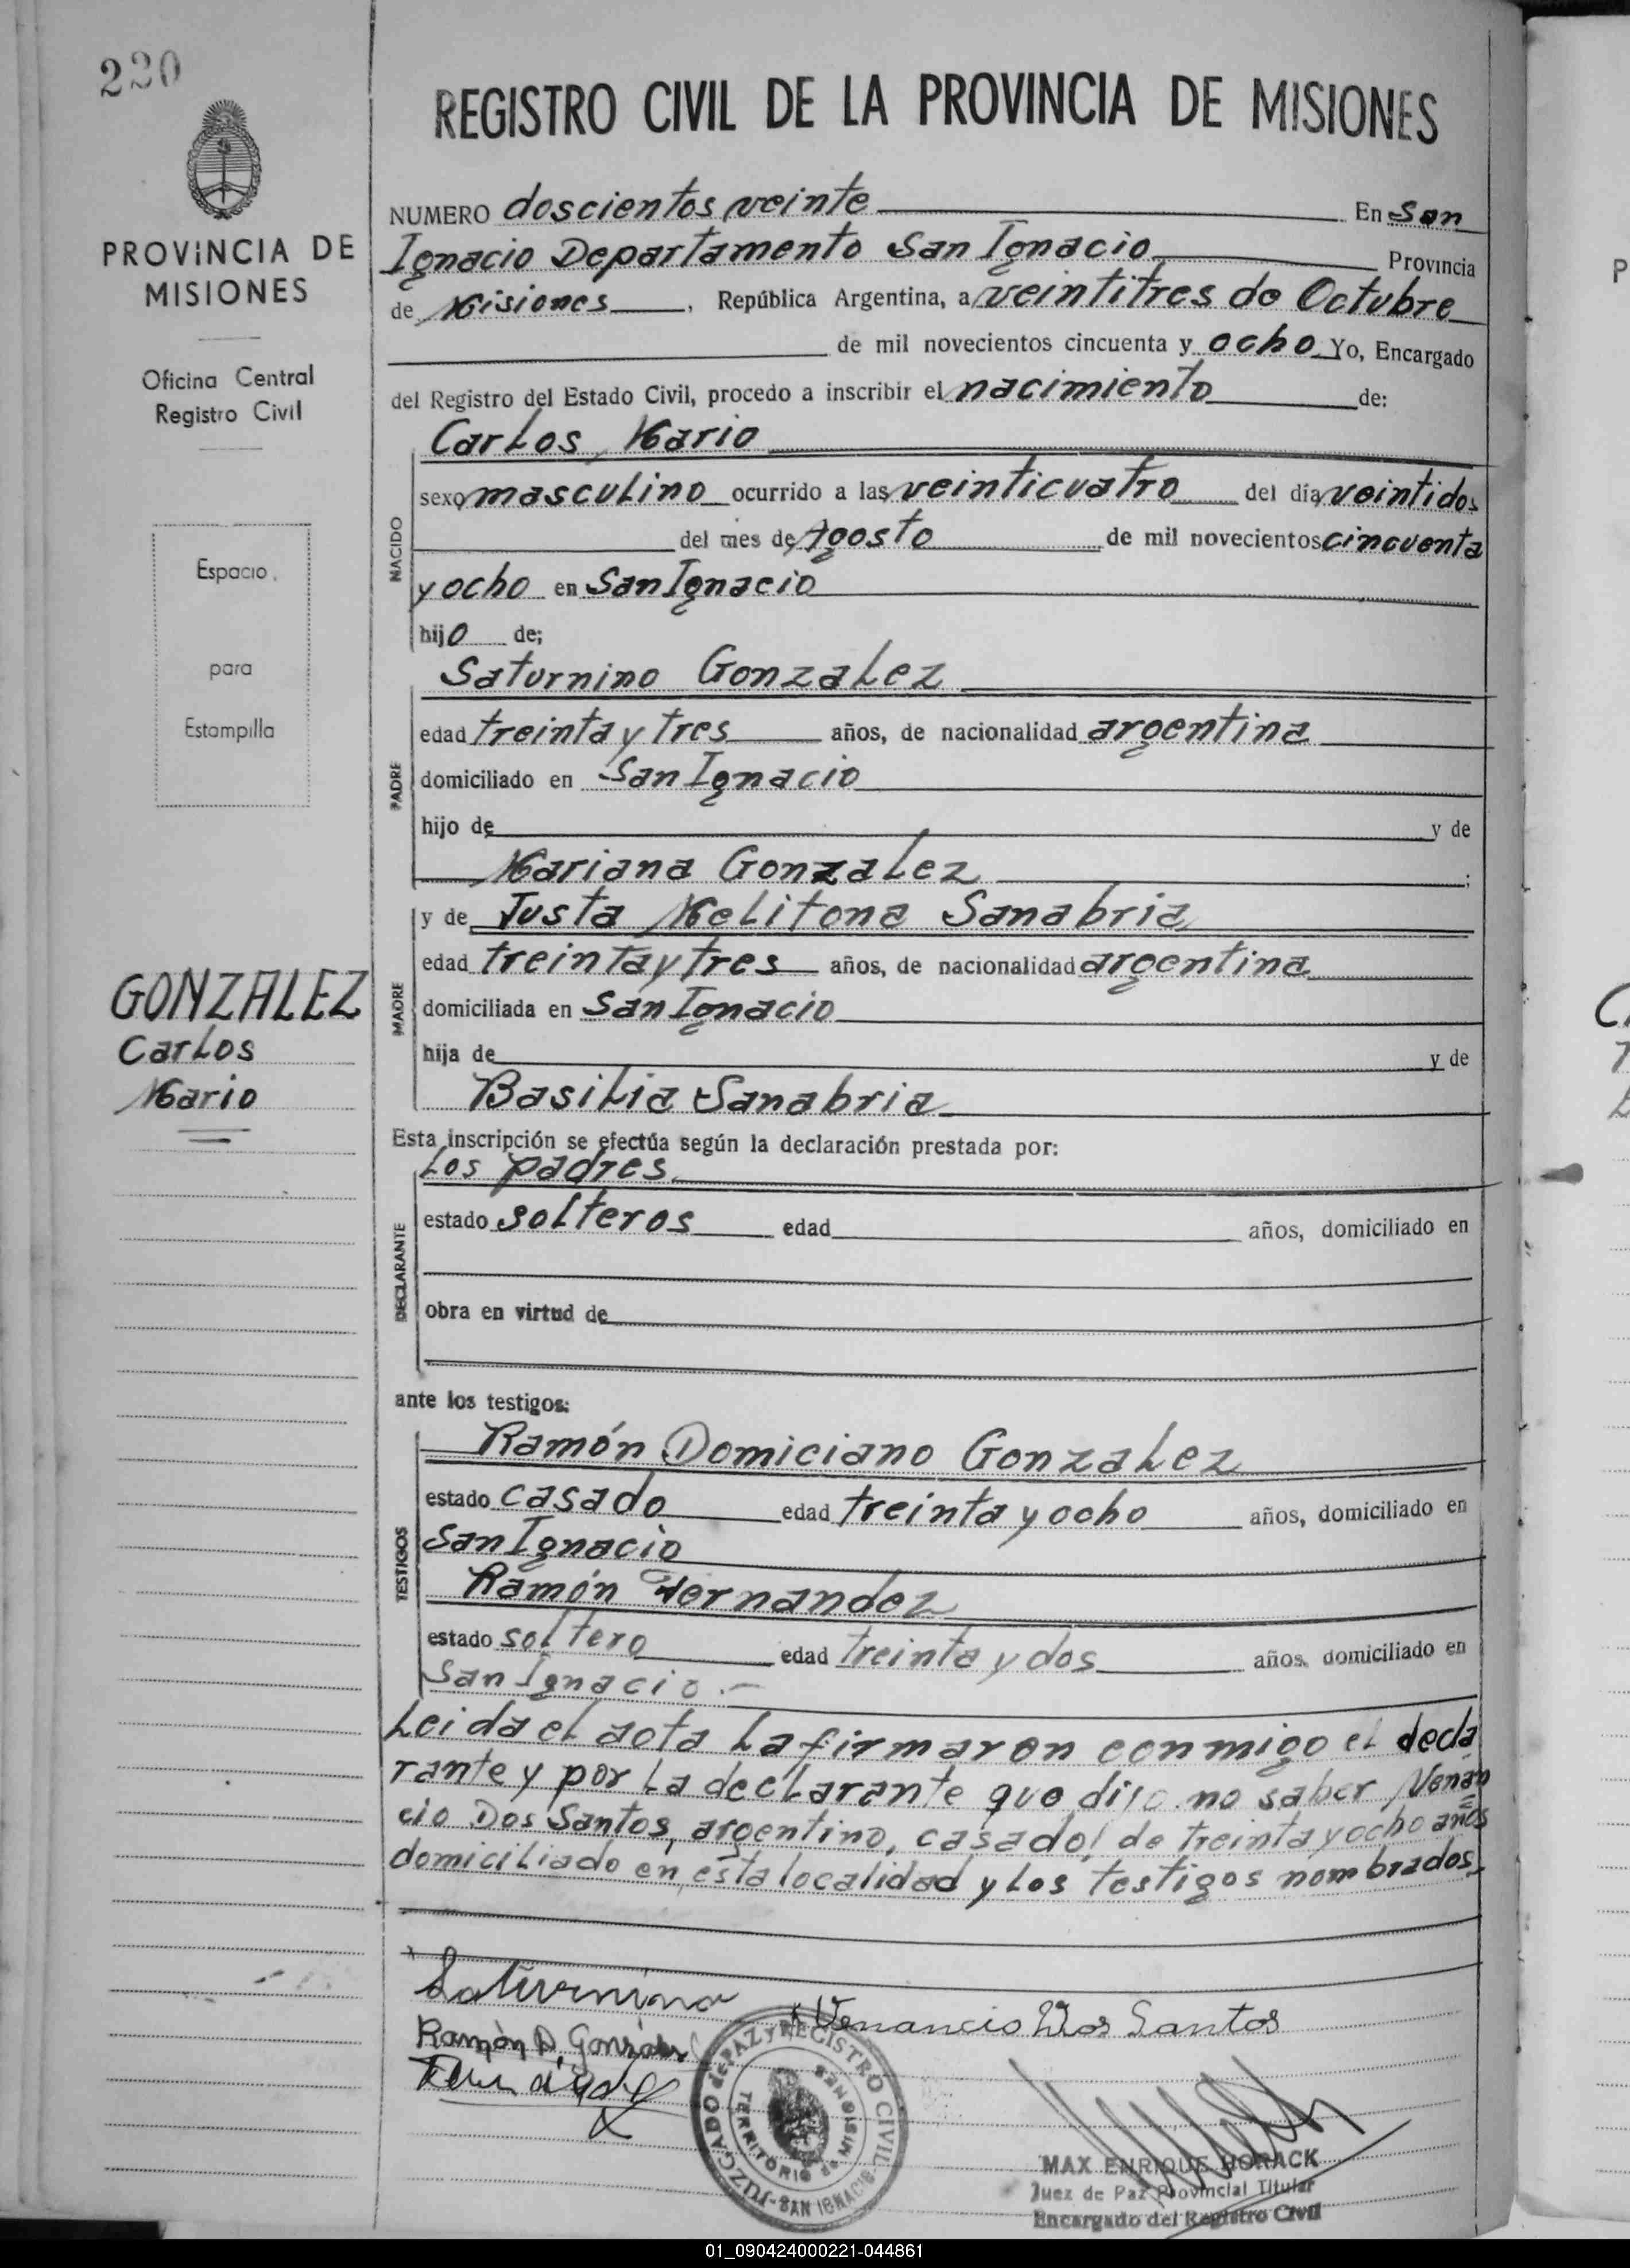 220
PROVINCIA DE
MISIONES
Oficina Central
Registro Civil
Espacio
para
Estampilla
GONZALEZ
Carlos
Mario
REGISTRO CIVIL DE LA PROVINCIA DE MISIONES
NUMERO doscientos veinte En San
Ignacio Departamento San Ignacio Provincia
de Misiones, República Argentina, a veintitres de Octubre
de mil novecientos cincuenta y ocho Yo, Encargado
del Registro del Estado Civil, procedo a inscribir el nacimiento de:
Carlos Mario
NACIDO
sexo masculino ocurrido a las veinticuatro del día veintidos
del mes de Agosto de mil novecientos cincuenta
y ocho en San Ignacio
hijo de;
Saturnino Gonzalez
PADRE
edad treinta y tres años, de nacionalidad argentina
domiciliado en San Ignacio
hijo de y de
Mariana Gonzalez ;
MADRE
y de Justa Melitona Sanabria
edad treinta y tres años, de nacionalidad argentina
domiciliada en San Ignacio
hija de y de
Basilia Sanabria
Esta inscripción se efectúa según la declaración prestada por:
Los padres
DECLARANTE
estado solteros edad años, domiciliado en
obra en virtud de
ante los testigos:
TESTIGOS
Ramón Domiciano Gonzalez
estado casado edad treinta y ocho años, domiciliado en
San Ignacio
Ramón Hernandez
estado soltero edad treinta y dos años, domiciliado en
San Ignacio.-
Leida el acta la firmaron conmigo el decla
rante y por la declarante que dijo no saber Venan=
cio Dos Santos, argentino, casado, de treinta y ocho años
domiciliado en esta localidad y los testigos nombrados.
Saturnino
Venancio Dos Santos
Ramón D. González
JUZGADO de PAZ y REGISTRO CIVIL
TERRITORIO de MISIONES
SAN IGNACIO
MAX ENRIQUE HORACK
Juez de Paz Provincial Titular
Encargado del Registro Civil
01_090424000221-044861